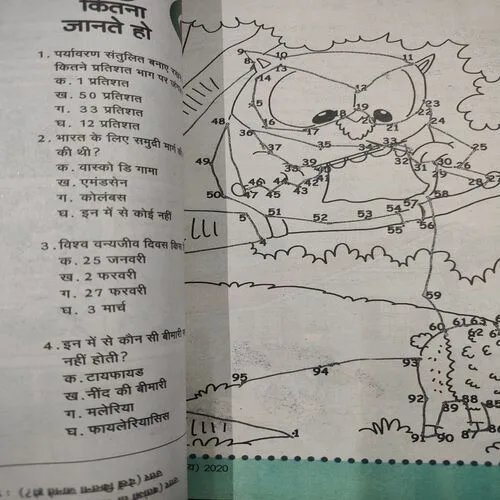 कितना
जानते हो
1. पर्यावरण संतुलित बनाए
कितने प्रतिशत भाग पर
क. 1 प्रतिशत
ख. 50 प्रतिशत
ग. 33 प्रतिशत
घ. 12 प्रतिशत
2. भारत के लिए समुदी मार्ग
की थी?
क. वास्को डि गामा
ख. एमंडसेन
ग. कोलंबस
घ. इन में से कोई नहीं
3. विश्व वन्यजीव दिवस
क. 25 जनवरी
ख. 2 फरवरी
ग. 27 फरवरी
घ. 3 मार्च
4. इन में से कौन सी बीमारी
नहीं होती?
क. टायफायड
ख. नींद की बीमारी
ग. मलेरिया
घ. फायलेरियासिस
9 10 11
8 13
14 12
5 19 23
48 16 18 20 21 22
36 17 24
37 35 34 33 25
49 38 39 40 32 31 30 26
41 29 28 27
50 46 44 43 42
47 45 58
5 51 52 53 54 57
4 55 56
59
60 61 63
62
95 94 93
92 88 85
89
1 91 90 87 86
2020